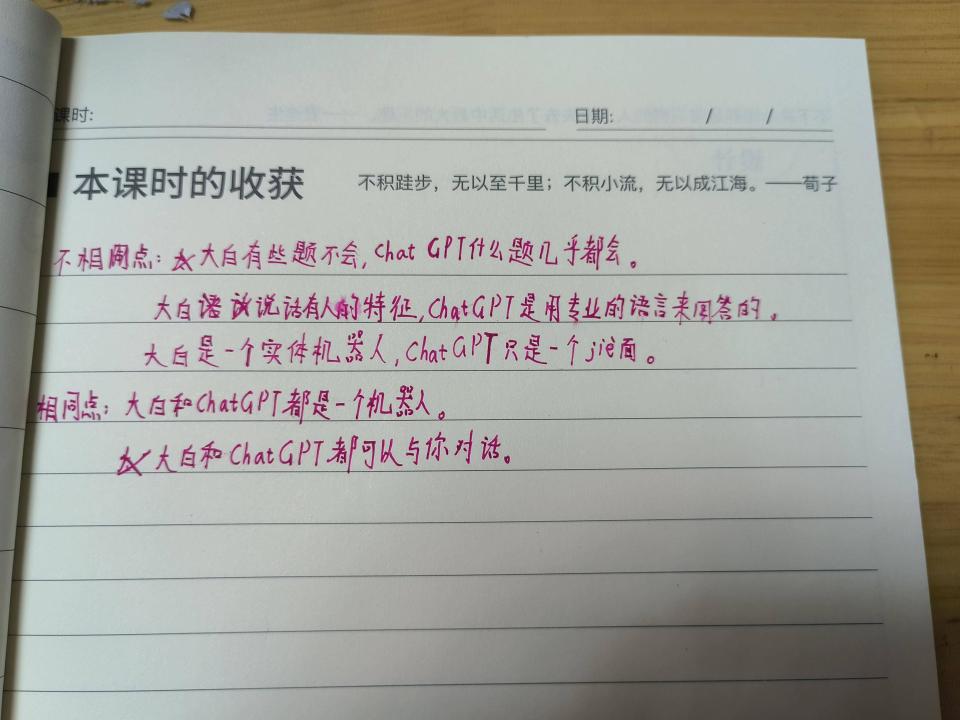 课时:
日期: / /
本课时的收获
不积跬步，无以至千里；不积小流，无以成江海。——荀子
不相同点：大白有些题不会，Chat GPT什么题几乎都会。
大白说话有人的特征，ChatGPT是用专业的语言来回答的。
大白是一个实体机器人，ChatGPT只是一个jiè面。
相同点：大白和ChatGPT都是一个机器人。
大白和ChatGPT都可以与你对话。